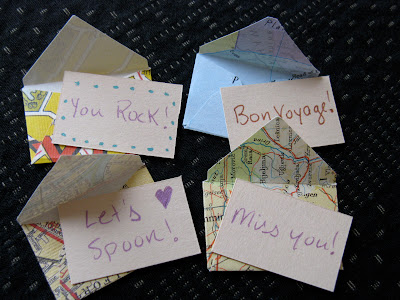 You Rock!
Bon Voyage!
Let's
Spoon!
Miss you!